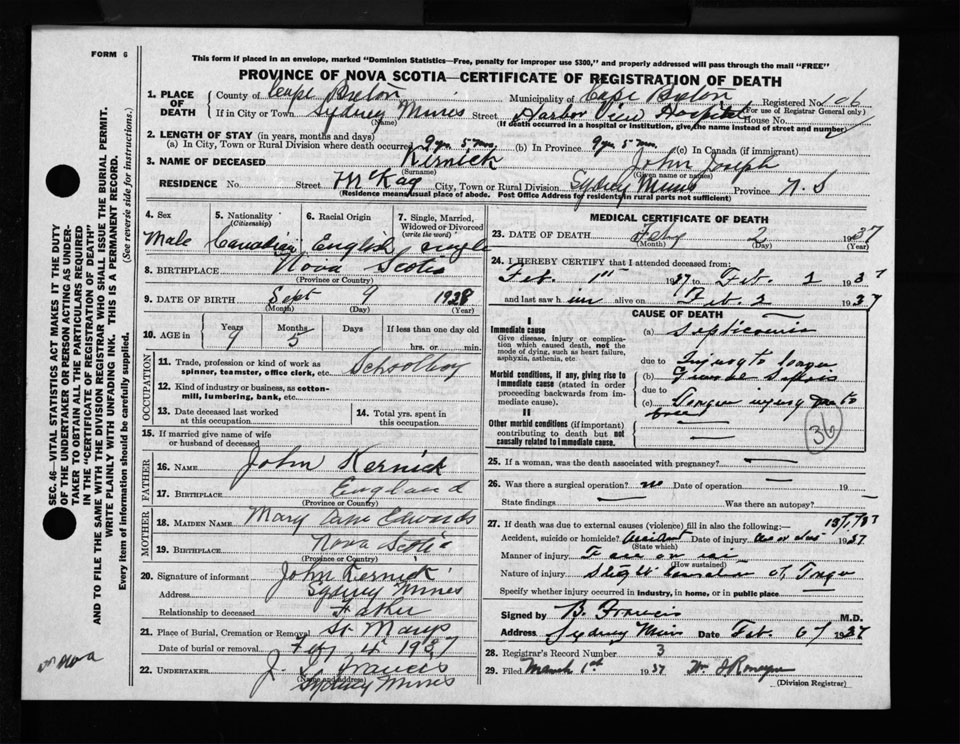 FORM 6
This form if placed in an envelope, marked "Dominion Statistics—Free, penalty for improper use $300," and properly addressed will pass through the mail "FREE"
PROVINCE OF NOVA SCOTIA—CERTIFICATE OF REGISTRATION OF DEATH
1. PLACE OF DEATH County of Cape Breton Municipality of Cape Breton Registered No. 106
(For use of Registrar General only)
If in City or Town Sydney Mines Street Harbor View Hospital House No.
(Name) (If death occurred in a hospital or institution, give the name instead of street and number)
2. LENGTH OF STAY (in years, months and days)
(a) In City, Town or Rural Division where death occurred 9 yrs 5 mos (b) In Province 9 yrs 5 mos (c) In Canada (if immigrant)
3. NAME OF DECEASED Kernick John Joseph
(Surname) (Given name or names)
RESIDENCE No. Street McKay City, Town or Rural Division Sydney Mines Province N. S
(Residence means usual place of abode. Post Office Address for residents in rural parts not sufficient)
4. Sex 5. Nationality (Citizenship) 6. Racial Origin 7. Single, Married, Widowed or Divorced (write the word)
Male Canadian English single
8. BIRTHPLACE Nova Scotia
(Province or Country)
9. DATE OF BIRTH Sept 9 1928
(Month) (Day) (Year)
10. AGE in Years Months Days If less than one day old
9 5 hrs. or min.
OCCUPATION
11. Trade, profession or kind of work as spinner, teamster, office clerk, etc. Schoolboy
12. Kind of industry or business, as cotton-mill, lumbering, bank, etc.
13. Date deceased last worked at this occupation
14. Total yrs. spent in this occupation
15. If married give name of wife or husband of deceased
FATHER
16. NAME John Kernick
17. BIRTHPLACE England
(Province or Country)
MOTHER
18. MAIDEN NAME Mary Jane Edwards
19. BIRTHPLACE Nova Scotia
(Province or Country)
20. Signature of informant John Kernick
Address Sydney Mines
Relationship to deceased Father
21. Place of Burial, Cremation or Removal St Marys
Date of burial or removal Feby 4 1937
22. UNDERTAKER J. Francis
(Name and address)
Sydney Mines
MEDICAL CERTIFICATE OF DEATH
23. DATE OF DEATH Feby 2 1937
(Month) (Day) (Year)
24. I HEREBY CERTIFY that I attended deceased from:
Feb. 1st 1937 to Feb. 2 1937
and last saw him alive on Feb. 2 1937
CAUSE OF DEATH
I
Immediate cause
Give disease, injury or complication which caused death, not the mode of dying, such as heart failure, asphyxia, asthenia, etc.
(a) Septicemia
due to Injury to
(b)
due to
(c) injury due to
Morbid conditions, if any, giving rise to Immediate cause (stated in order proceeding backwards from immediate cause).
II
Other morbid conditions (if important) contributing to death but not causally related to Immediate cause.
36
25. If a woman, was the death associated with pregnancy?
26. Was there a surgical operation? no Date of operation 19
State findings Was there an autopsy?
27. If death was due to external causes (violence) fill in also the following:— 13/1/37
Accident, suicide or homicide? Accident Date of injury 1937
(State which)
Manner of injury
(How sustained)
Nature of injury Slight of
Specify whether injury occurred in industry, in home, or in public place
Signed by B. Francis M.D.
Address Sydney Mines Date Feb. 6 / 1937
28. Registrar's Record Number 3
29. Filed March 1st 1937 Wm
(Division Registrar)
SEC. 46—VITAL STATISTICS ACT MAKES IT THE DUTY OF THE UNDERTAKER OR PERSON ACTING AS UNDERTAKER TO OBTAIN ALL THE PARTICULARS REQUIRED IN THE "CERTIFICATE OF REGISTRATION OF DEATH" AND TO FILE THE SAME WITH THE DIVISION REGISTRAR WHO SHALL ISSUE THE BURIAL PERMIT.
WRITE PLAINLY WITH UNFADING INK. THIS IS A PERMANENT RECORD.
Every item of information should be carefully supplied. (See reverse side for instructions.)